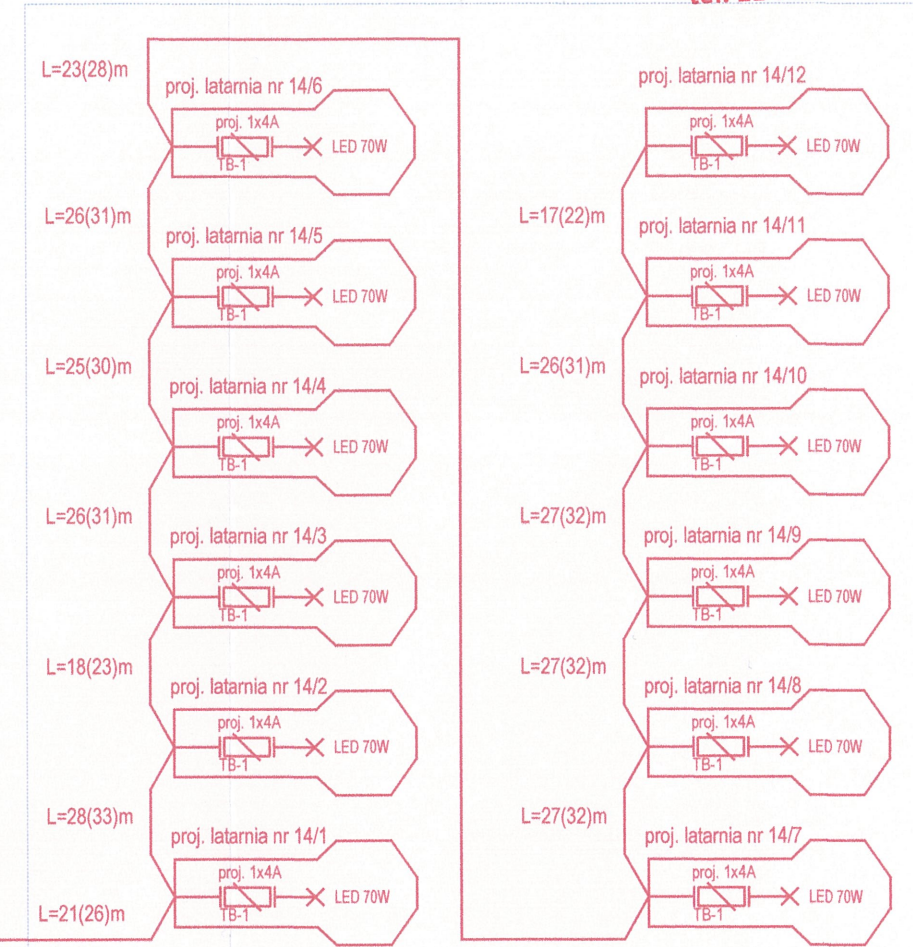 L=23(28)m
proj. latarnia nr 14/6
proj. 1x4A
LED 70W
TB-1
L=26(31)m
proj. latarnia nr 14/5
proj. 1x4A
LED 70W
TB-1
L=25(30)m
proj. latarnia nr 14/4
proj. 1x4A
LED 70W
TB-1
L=26(31)m
proj. latarnia nr 14/3
proj. 1x4A
LED 70W
TB-1
L=18(23)m
proj. latarnia nr 14/2
proj. 1x4A
LED 70W
TB-1
L=28(33)m
proj. latarnia nr 14/1
proj. 1x4A
LED 70W
TB-1
L=21(26)m
proj. latarnia nr 14/12
proj. 1x4A
LED 70W
TB-1
L=17(22)m
proj. latarnia nr 14/11
proj. 1x4A
LED 70W
TB-1
L=26(31)m
proj. latarnia nr 14/10
proj. 1x4A
LED 70W
TB-1
L=27(32)m
proj. latarnia nr 14/9
proj. 1x4A
LED 70W
TB-1
L=27(32)m
proj. latarnia nr 14/8
proj. 1x4A
LED 70W
TB-1
L=27(32)m
proj. latarnia nr 14/7
proj. 1x4A
LED 70W
TB-1